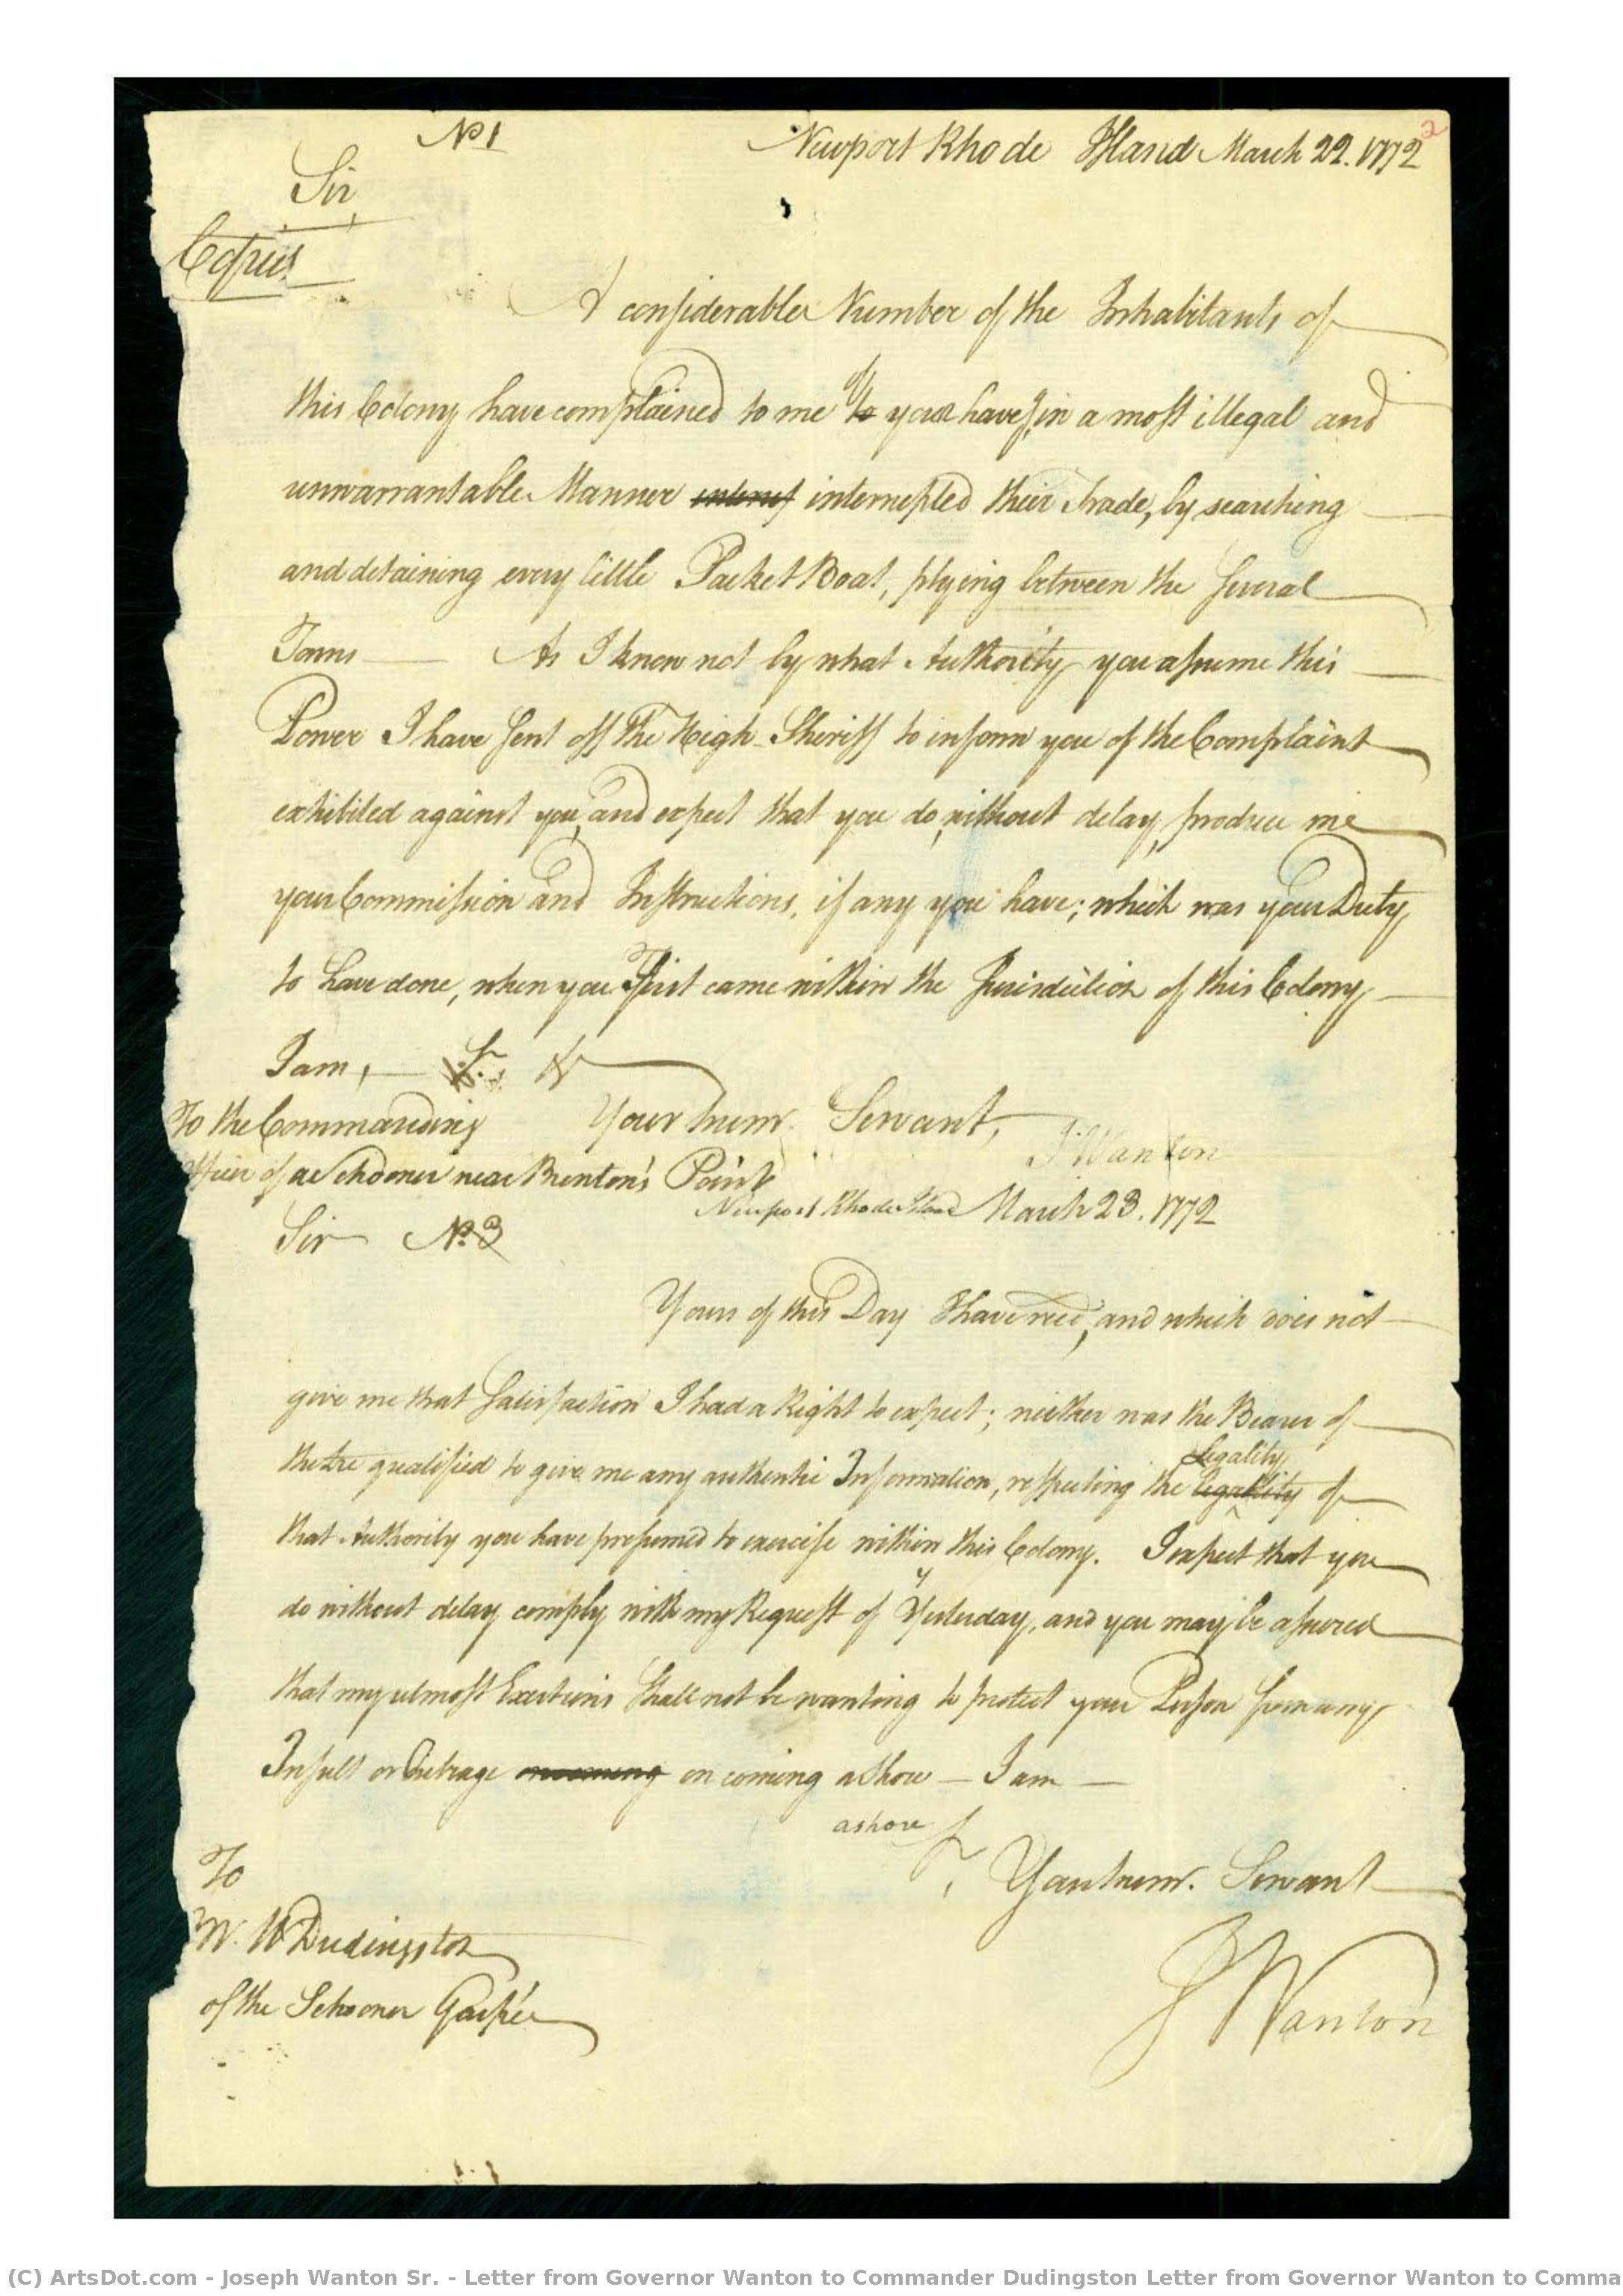 No 1
Newport Rhode Island March 22. 1772
2
Sir,
Copies
A considerable Number of the Inhabitants of
this Colony have complained to me of you having in a most illegal and
unwarrantable Manner interrupted their Trade, by searching
and detaining every little Packet Boat, plying between the several
Towns — As I know not by what Authority you assume this
Power I have sent off the High Sheriff to inform you of the Complaint
exhibited against you, and expect that you do, without delay, produce me
your Commission and Instructions, if any you have; which was your Duty
to have done, when you first came within the Jurisdiction of this Colony
I am, — Sr. &
Your hum. Servant,
J Wanton
To the Commanding
Officer of a Schooner near Brenton's Point
Newport Rhode Island March 23. 1772
Sir No. 3
Yours of this Day I have recd, and which does not
give me that Satisfaction I had a Right to expect; neither was the Bearer of
the Lre qualified to give me any authentic Information, respecting the Legality of
that Authority you have presumed to exercise within this Colony. I expect that you
do without delay comply with my Request of Yesterday, and you may be assured
that my utmost Exertions shall not be wanting to protect your Person from any
Insult or Outrage on coming ashore — I am —
ashore
Sr, Your hum. Servant
To
W. Dudingston
of the Schooner Gaspée
J Wanton
(C) ArtsDot.com - Joseph Wanton Sr. - Letter from Governor Wanton to Commander Dudingston Letter from Governor Wanton to Comma